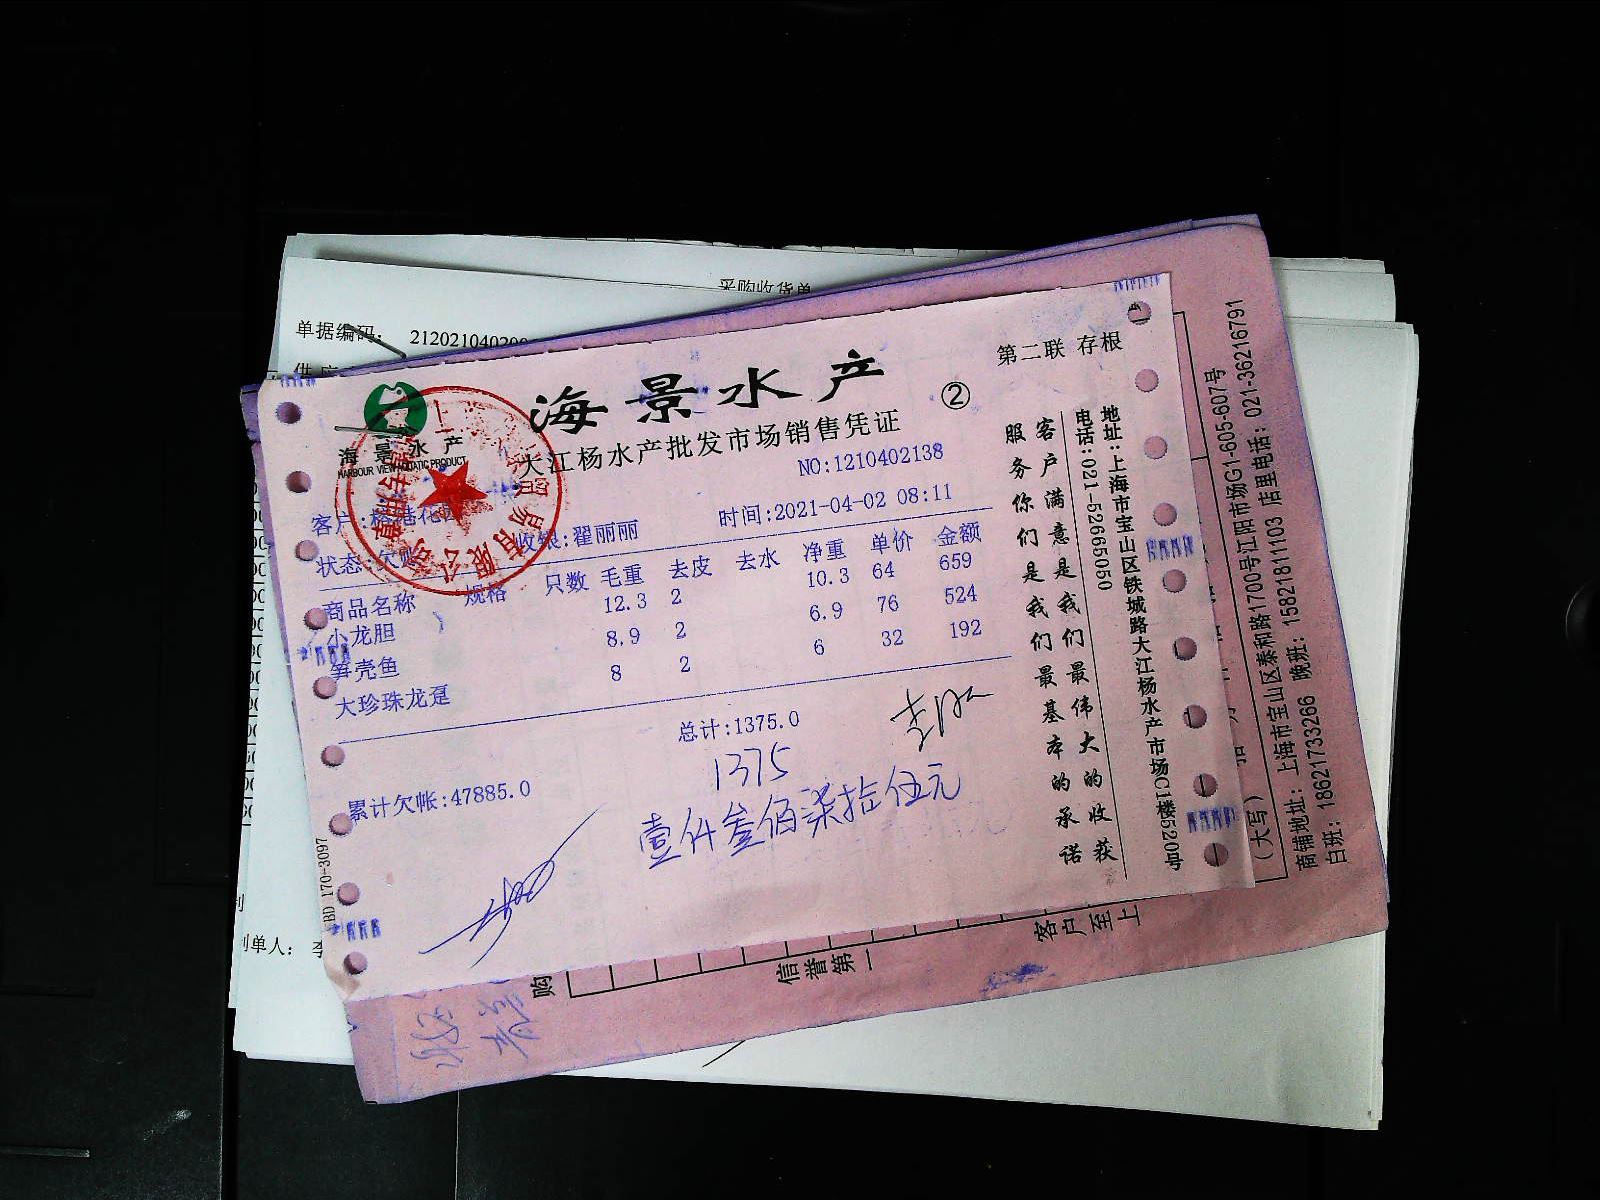 采购收货单
单据编码：
海景水产
HARBOUR VIEW AQUATIC PRODUCT
海景水产
②
第二联 存根
大江杨水产批发市场销售凭证
NO:1210402138
客户:
时间:2021-04-02 08:11
状态:欠账
收银:翟丽丽
商品名称 规格 只数 毛重 去皮 去水 净重 单价 金额
小龙胆 12.3 2 10.3 64 659
笋壳鱼 8.9 2 6.9 76 524
大珍珠龙趸 8 2 6 32 192
总计:1375.0
1375
累计欠帐:47885.0
壹仟叁佰柒拾伍元
BD 170-3097
客户满意是我们最伟大的收获
服务你们是我们最基本的承诺
地址:上海市宝山区铁城路大江杨水产市场C1楼520号
电话:021-52665050
（大写）
商铺地址：上海市宝山区泰和路1700号江阳市场G1-605-607号
白班：18621733266 晚班：15821811103 店里电话：021-36216791
购
信誉第一
客户至上
制单人：